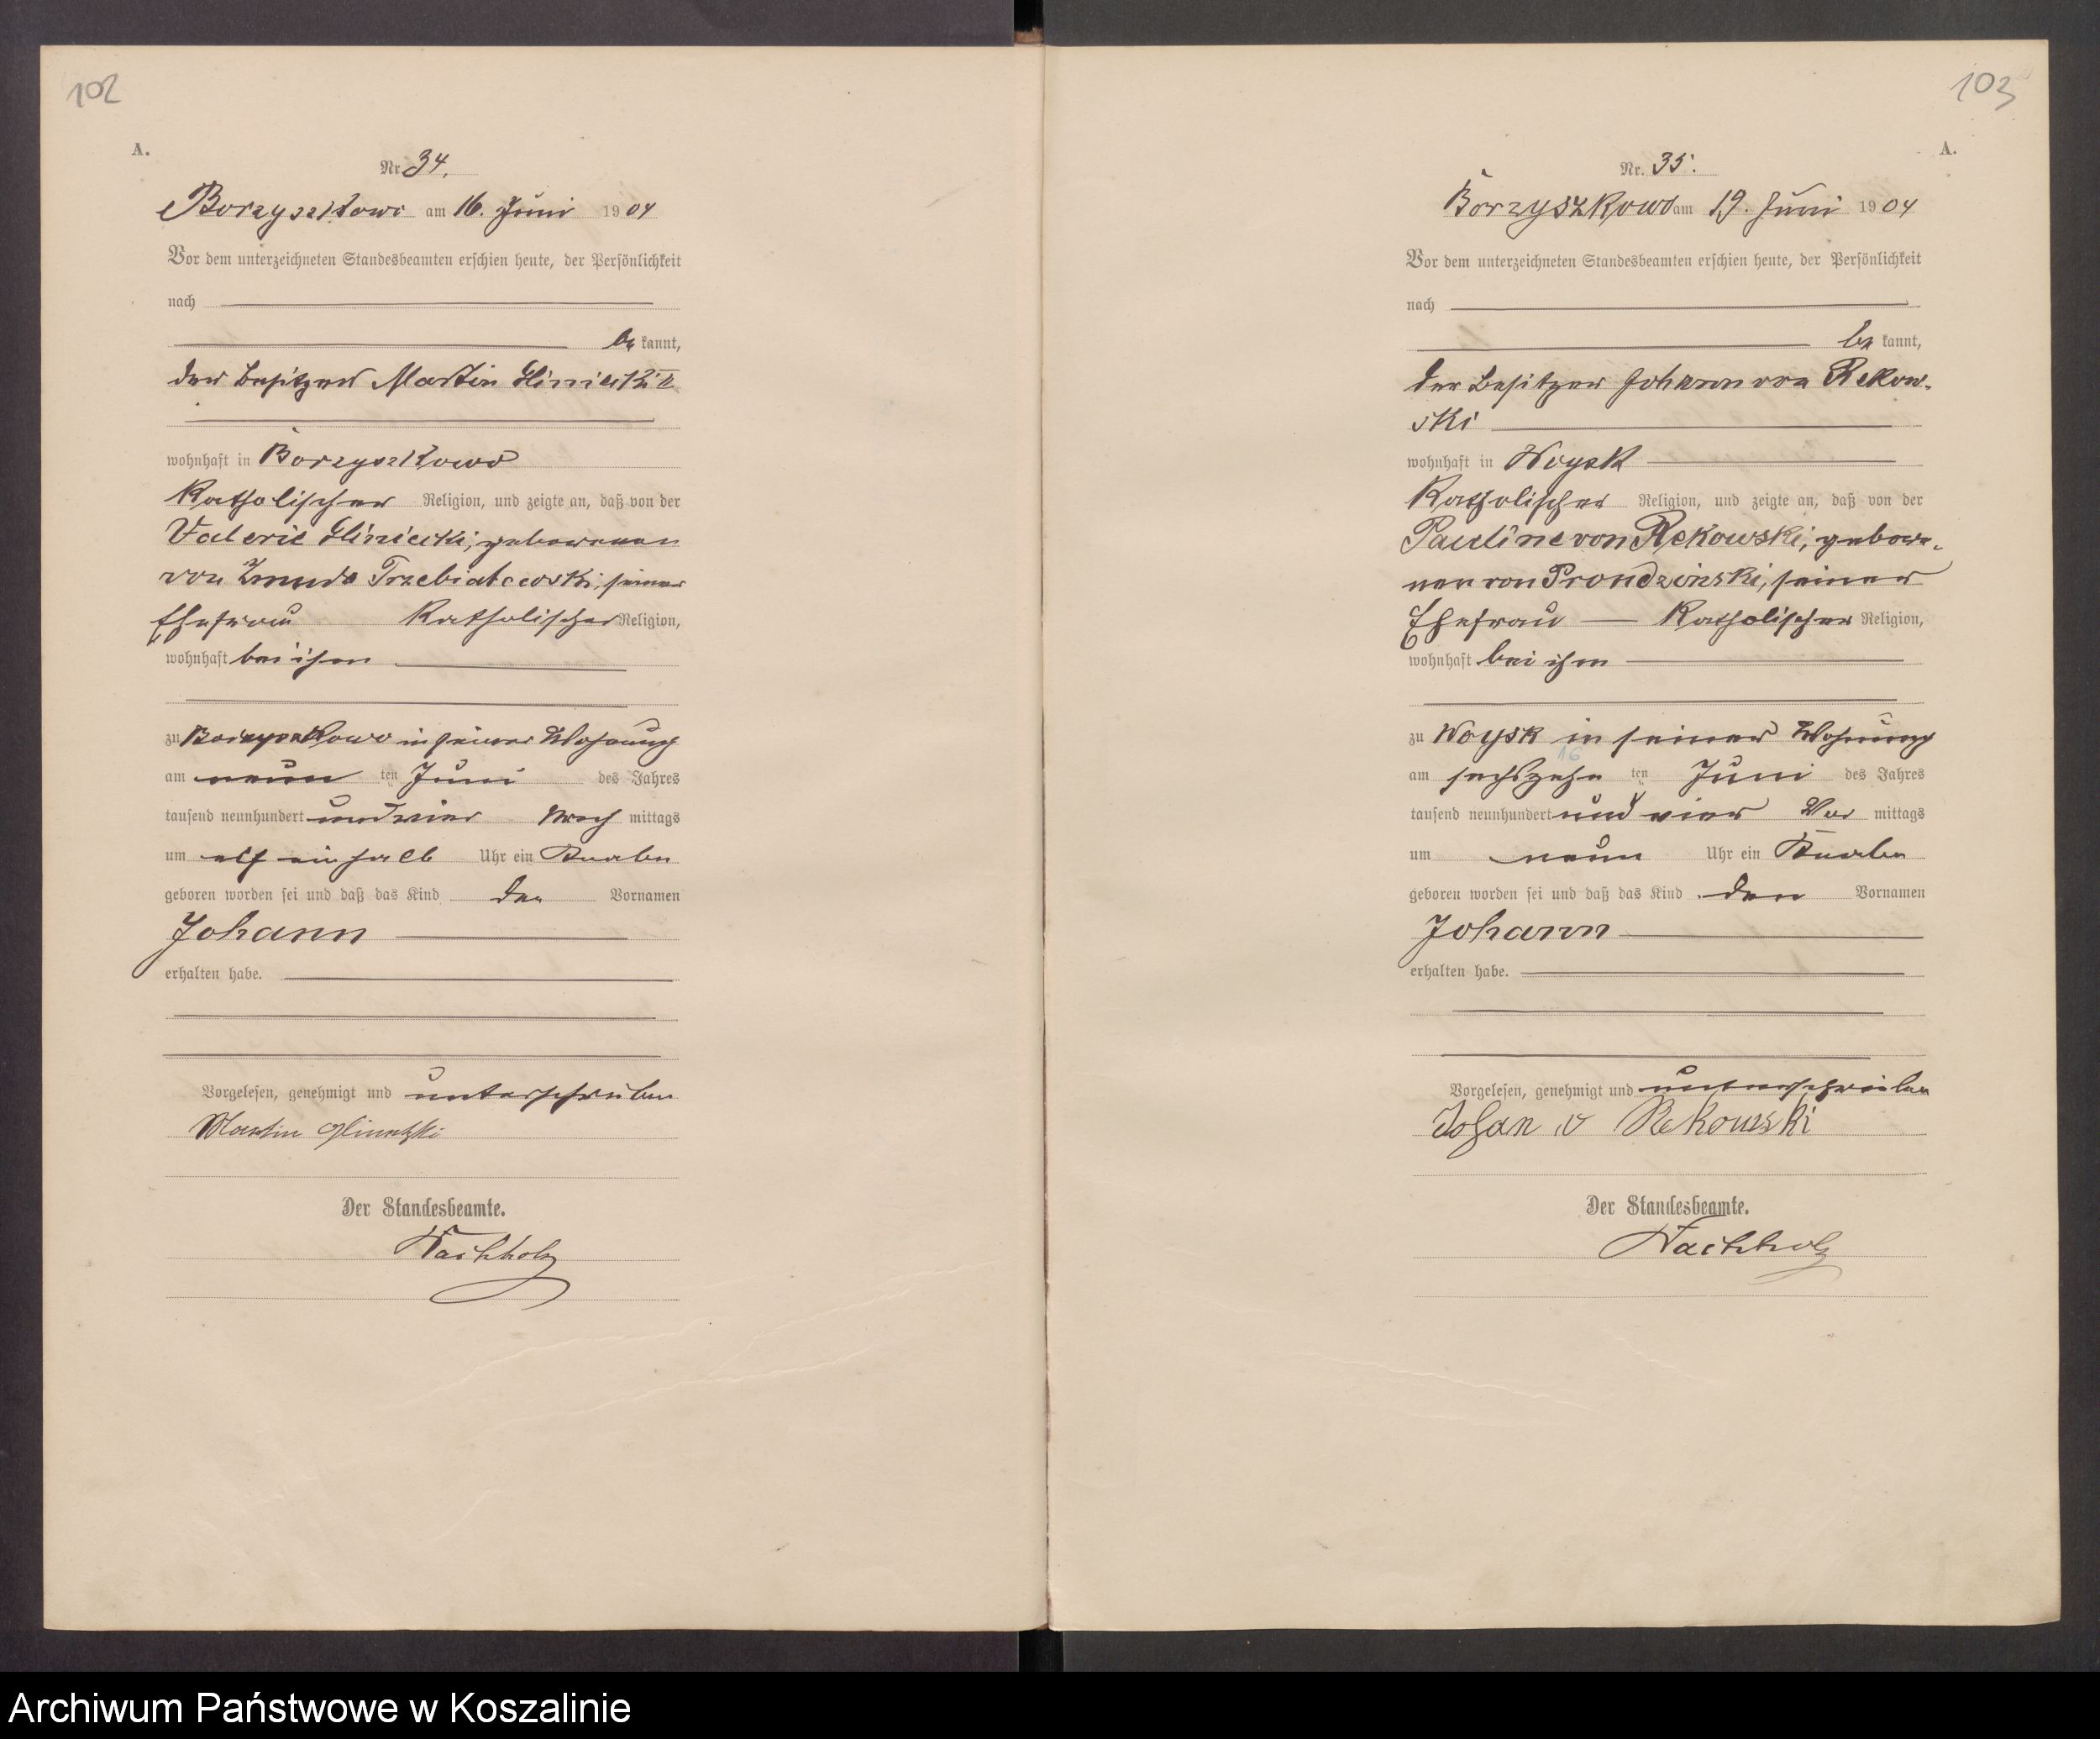 102
A.
Nr. 34.
Borzyszkowo am 16. Juni 1904
Vor dem unterzeichneten Standesbeamten erschien heute, der Persönlichkeit
nach
be kannt,
der Besitzer Martin Gliniecki II
wohnhaft in Borzyszkowo
katholischer Religion, und zeigte an, daß von der
Valerie Gliniecki, geborenen
von Zmuda Trzebiatowski, seiner
Ehefrau katholischer Religion,
wohnhaft bei ihm
zu Borzyszkowo in seiner Wohnung
am neun ten Juni des Jahres
tausend neunhundert und vier Nach mittags
um elf ein halb Uhr ein Knabe
geboren worden sei und daß das Kind den Vornamen
Johann
erhalten habe.
Vorgelesen, genehmigt und unterschrieben
Martin Glinetzki
Der Standesbeamte.
Wachholz
103
A.
Nr. 35.
Borzyszkowo am 19. Juni 1904
Vor dem unterzeichneten Standesbeamten erschien heute, der Persönlichkeit
nach
be kannt,
der Besitzer Johann von Rekow-
ski
wohnhaft in Woysk
katholischer Religion, und zeigte an, daß von der
Pauline von Rekowski, gebore-
nen von Prondzinski, seiner
Ehefrau katholischer Religion,
wohnhaft bei ihm
zu Woysk in seiner Wohnung
16
am sechszehn ten Juni des Jahres
tausend neunhundert und vier Vor mittags
um neun Uhr ein Knabe
geboren worden sei und daß das Kind den Vornamen
Johann
erhalten habe.
Vorgelesen, genehmigt und unterschrieben
Johan v Rekowski
Der Standesbeamte.
Wachholz
Archiwum Państwowe w Koszalinie